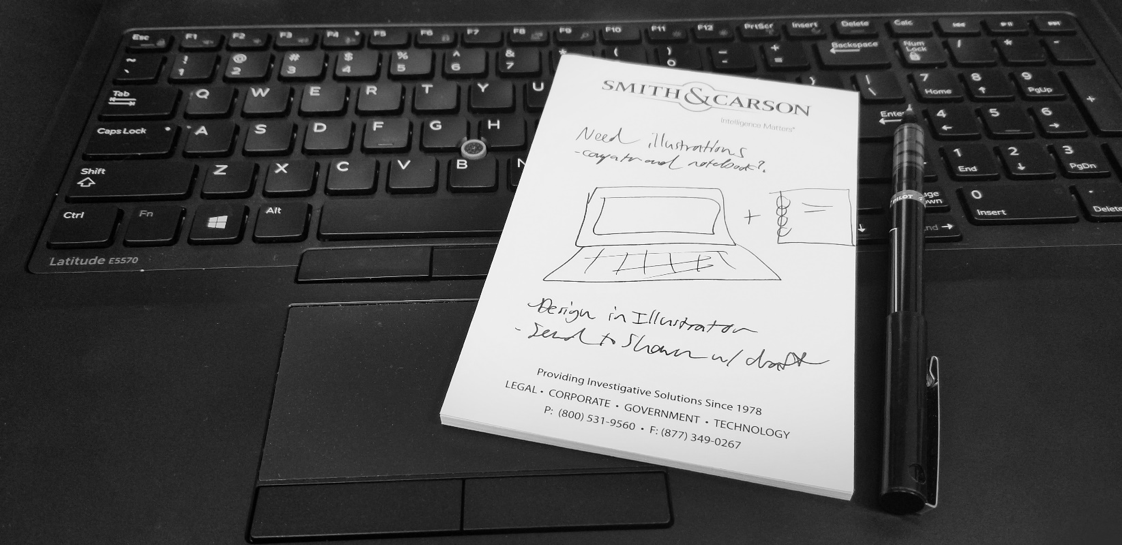 Esc F1 F2 F3 F4 F5 F6 F7 F8 F9 F10 F11 F12 PrtScr Insert Delete Calc
~ ` ! 1 @ 2 # 3 $ 4 % 5 ^ 6 & 7 * ( ) 0 _ - + = Backspace Num Lock / * -
Tab Q W E R T Y U } | \ 7 Home 8 9 PgUp +
Caps Lock A S D F G H Enter 4 5 6
Shift Z X C V B N 1 End 2 3 PgDn
Ctrl Fn Alt End 0 Insert . Delete
Latitude E5570
SMITH & CARSON
Intelligence Matters®
Need illustrations
- computer and notebook?
+
- Design in Illustrator
- Send to Shawn w/ draft
Providing Investigative Solutions Since 1978
LEGAL • CORPORATE • GOVERNMENT • TECHNOLOGY
P: (800) 531-9560 • F: (877) 349-0267
PILOT